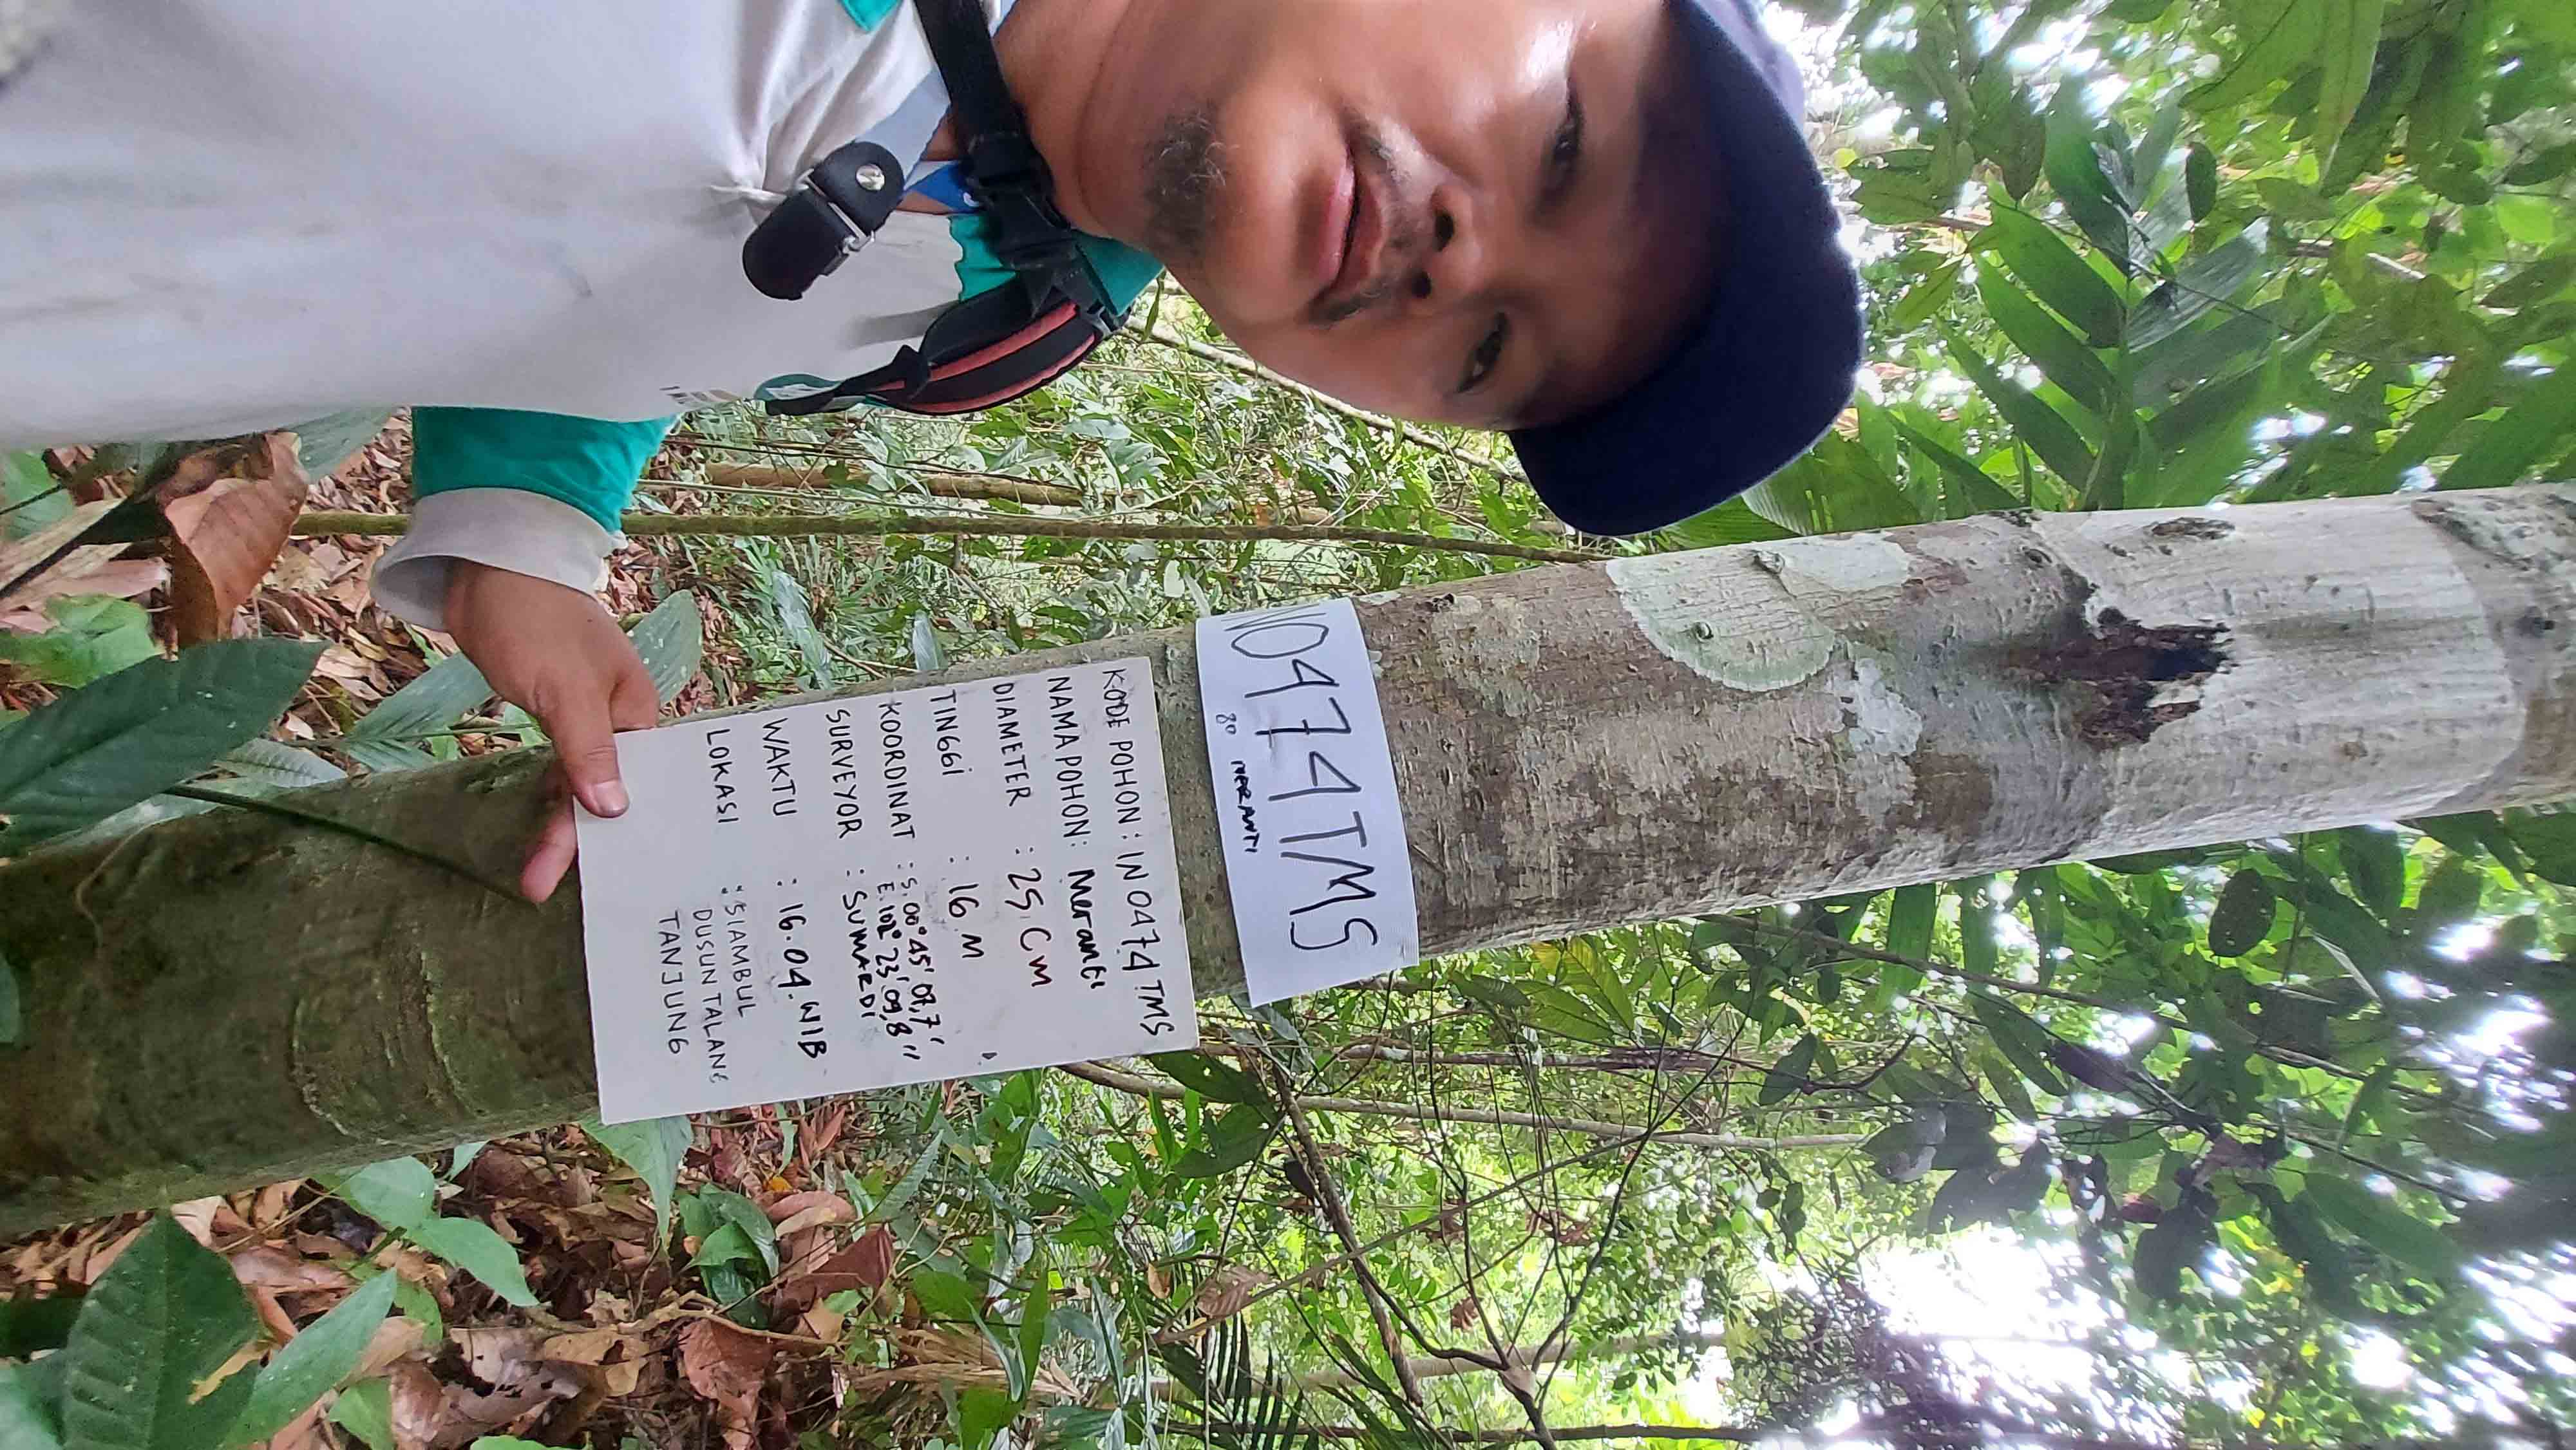 IN0474TMS
80 MERANTI
KODE POHON : IN 0474 TMS
NAMA POHON : Meranti
DIAMETER : 25 Cm
TINGGI : 16 M
KOORDINAT : S. 00° 45' 07,7'
E. 102° 23' 09,8"
SURVEYOR : SUMARDI
WAKTU : 16.04. WIB
LOKASI : SIAMBUL
DUSUN TALANG
TANJUNG